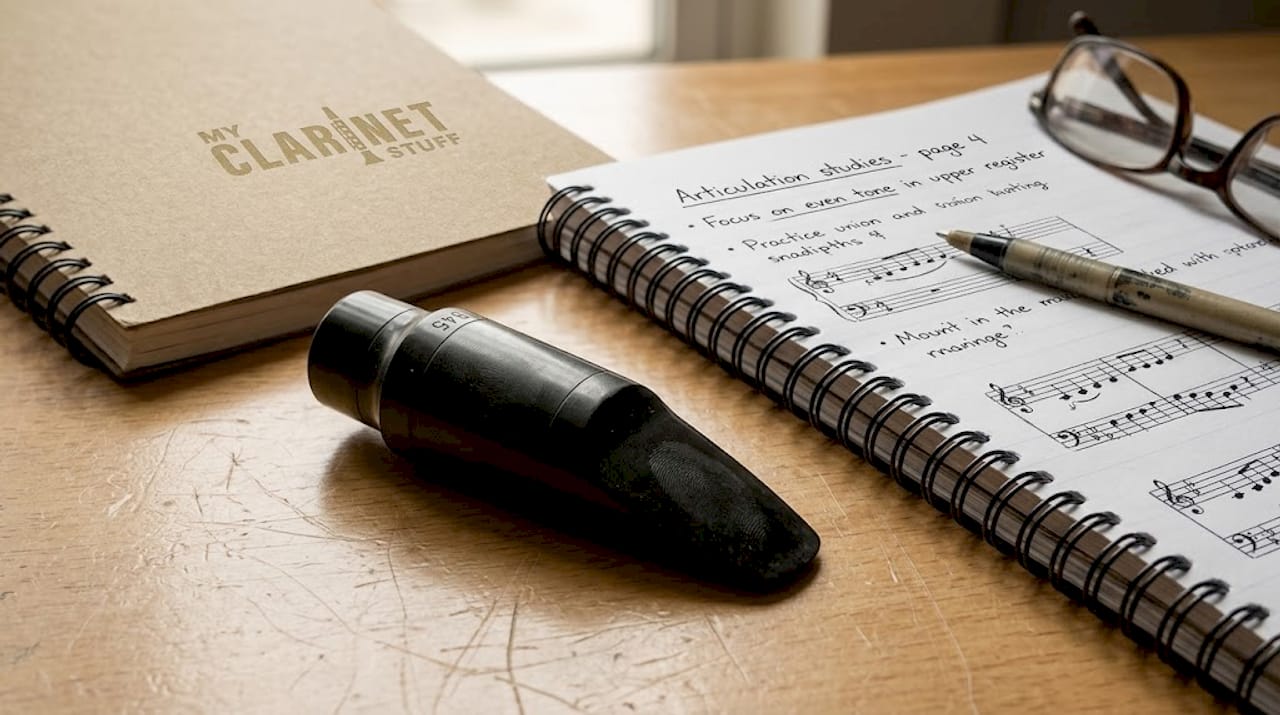 MY
CLARINET
STUFF
B45
Articulation studies - page 4
• Focus on even tone in upper register
• Practice union and
• Mount in the